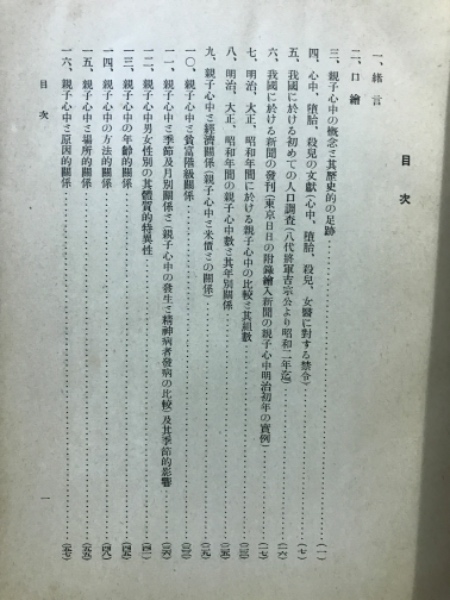 目次
一、緒言
二、口繪
三、親子心中の概念と其歷史的の足跡……(一)
四、心中、墮胎、殺兒の文獻(心中、墮胎、殺兒、女醫に對する禁令)……(七)
五、我國に於ける初めての人口調査(八代將軍吉宗公より昭和二年迄)……(一六)
六、我國に於ける新聞の發刊(東京日日の附錄繪入新聞の親子心中明治初年の實例)……(一七)
七、明治、大正、昭和年間に於ける親子心中の比較と其組數……(二三)
八、明治、大正、昭和年間の親子心中數と其年別關係……(二五)
九、親子心中と經濟關係(親子心中と米價との關係)……(二九)
一〇、親子心中と貧富階級關係……
一一、親子心中と季節及月別關係と(親子心中の發生と精神病者發病の比較)及其季節的影響……(三六)
一二、親子心中男女性別の其體質的特異性……(四一)
一三、親子心中の年齡的關係……(四五)
一四、親子心中の方法的關係……(四八)
一五、親子心中と場所的關係……(五五)
一六、親子心中と原因的關係……(五七)
目次
一